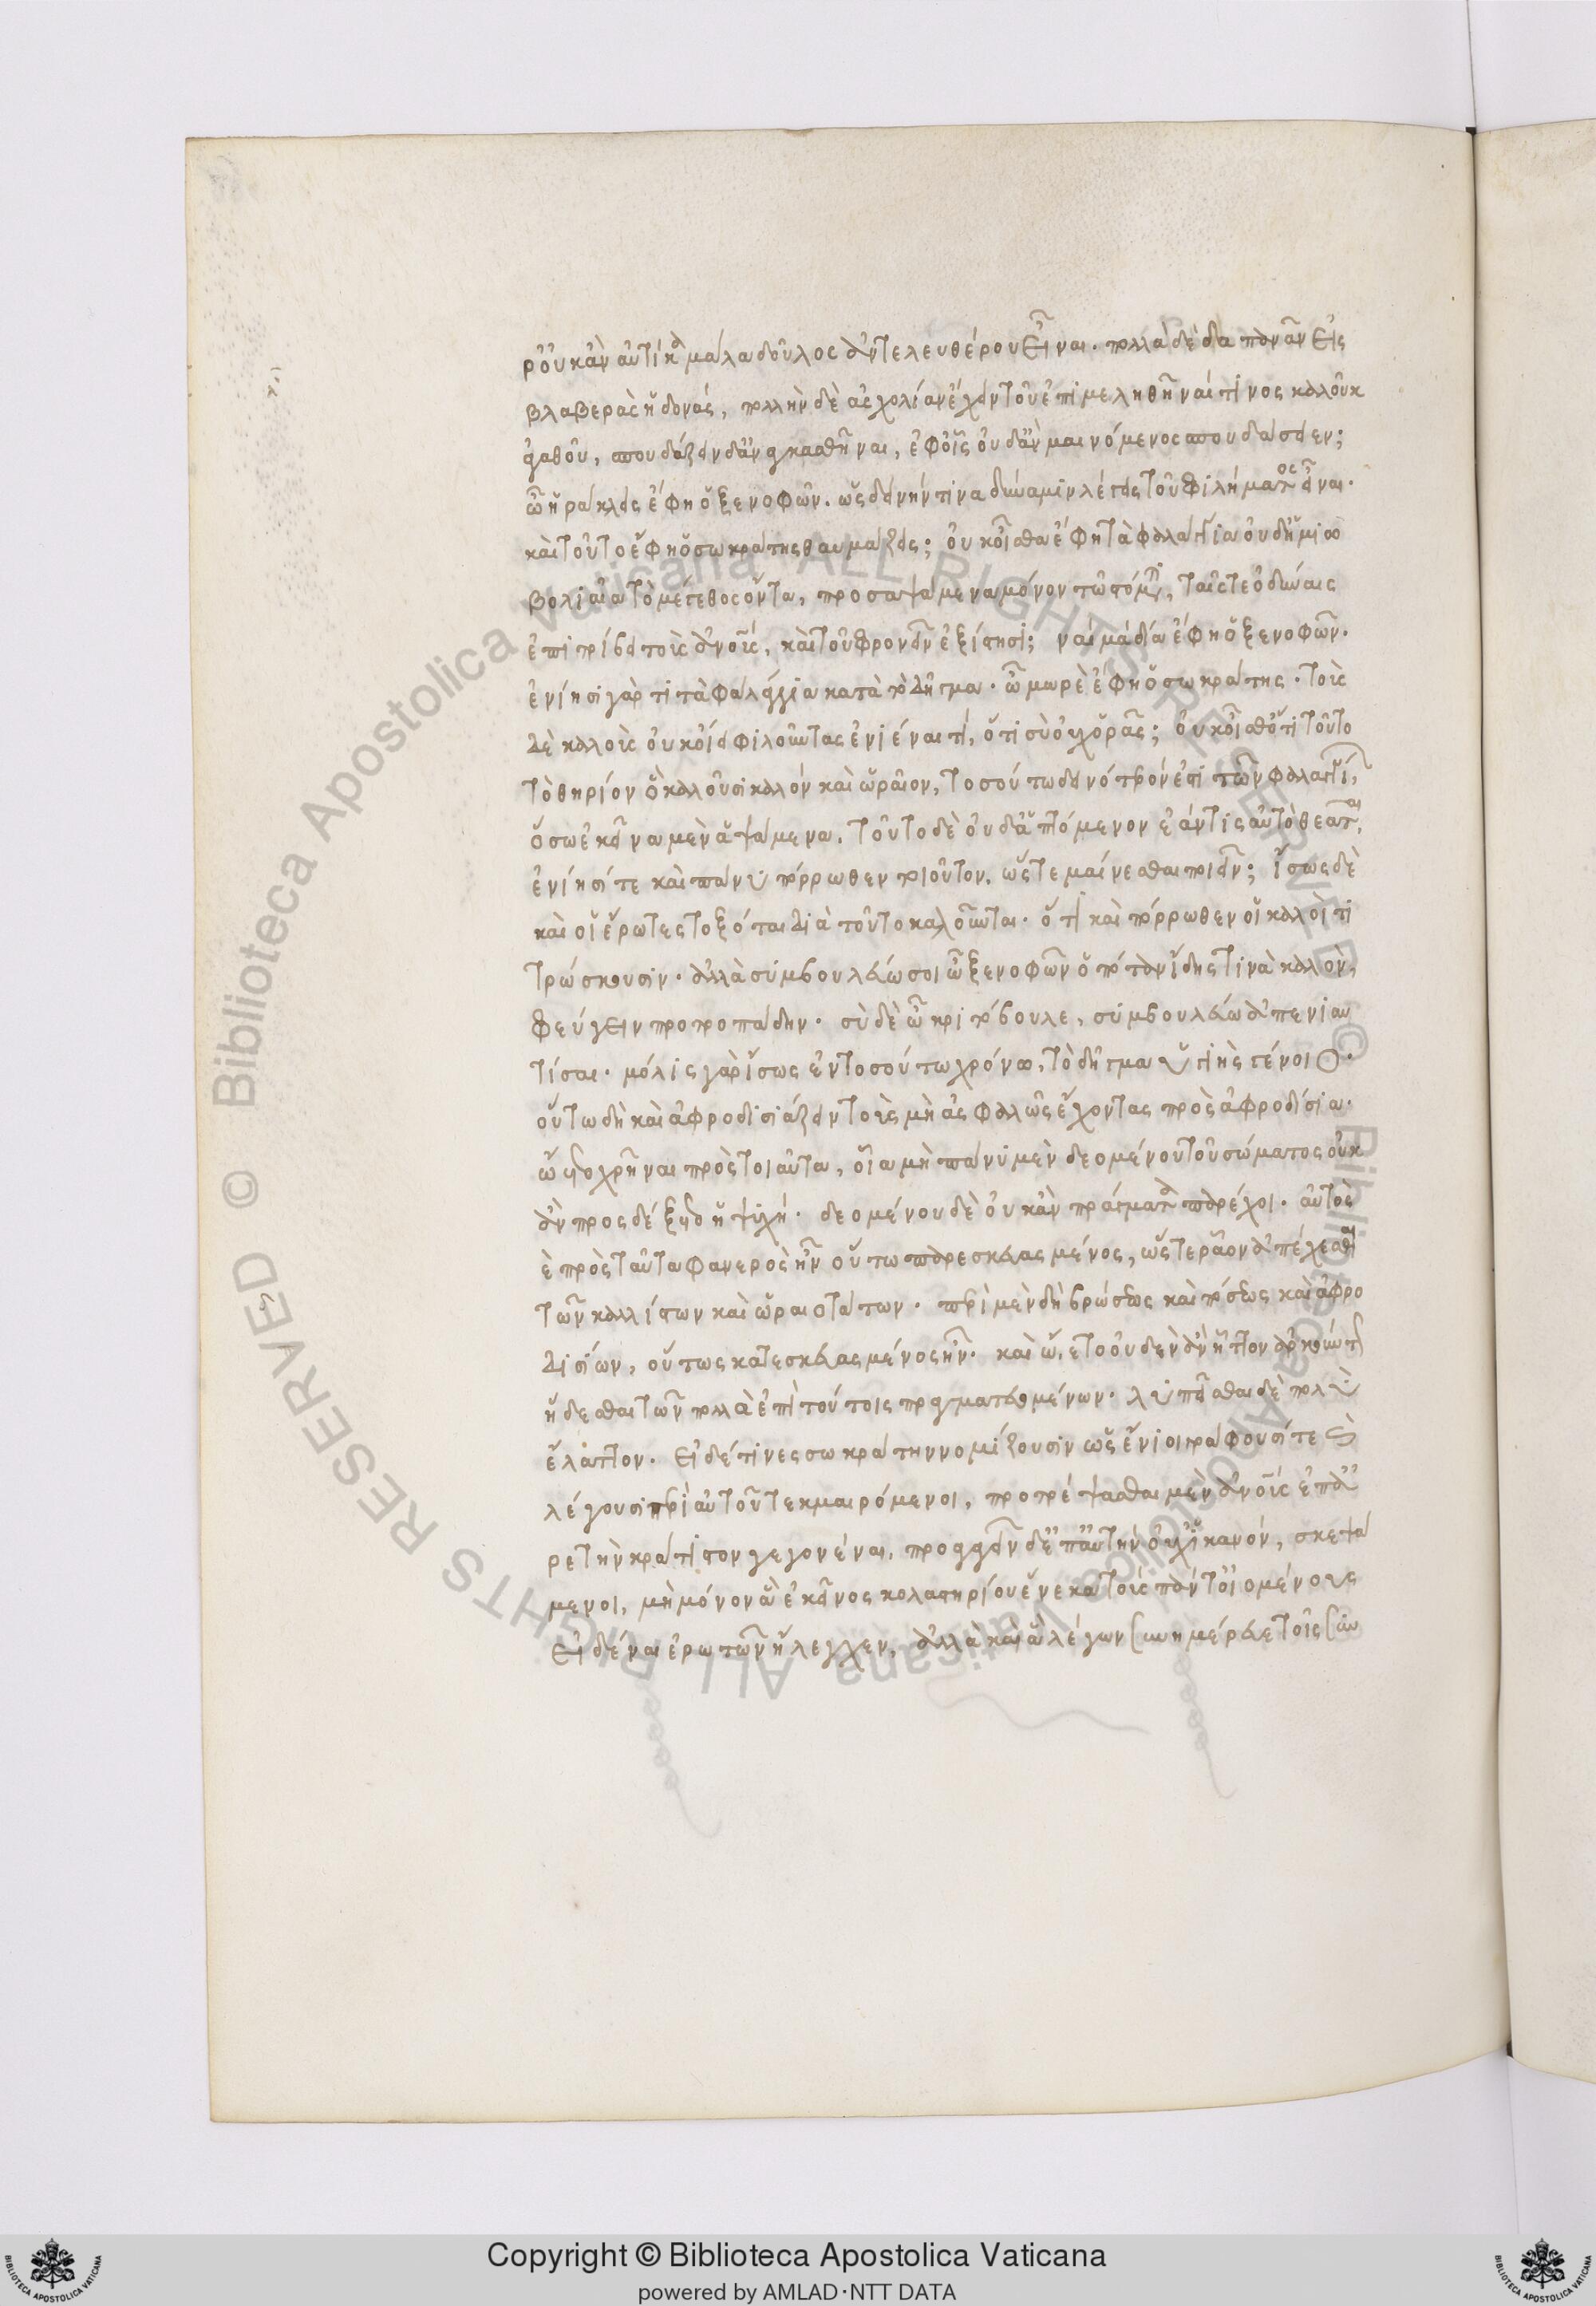 ρ' οὐκ ἂν αὐτίκα μάλα δοῦλος ἀντ' ἐλευθέρου εἶναι. πολλὰ δὲ δαπανᾶν εἰς
βλαβερὰς ἡδονάς, πολλὴν δὲ ἀσχολίαν ἔχειν τοῦ ἐπιμεληθῆναί τινος καλοῦ κ
ἀγαθοῦ, σπουδάζειν δ' ἀναγκασθῆναι, ἐφ' οἷς οὐδ' ἂν μαινόμενος σπουδάσειεν;
ὦ ἡράκλεις ἔφη ὁ ξενοφῶν. ὡς δεινήν τινα δύναμιν λέγεις τοῦ φιλήματος εἶναι.
καὶ τοῦτο ἔφη ὁ σωκράτης θαυμάζεις; οὐκ οἶσθα ἔφη τὰ φαλάγγια οὐδ' ἡμιω
βολιαῖα τὸ μέγεθος ὄντα, προσαψάμενα μόνον τῷ στόματι, ταῖς τε ὀδύναις
ἐπιτρίβει τοὺς ἀνθρώπους, καὶ τοῦ φρονεῖν ἐξίστησι; ναὶ μὰ δία ἔφη ὁ ξενοφῶν.
ἐνίησι γάρ τι τὰ φαλάγγια κατὰ τὸ δῆγμα. ὦ μωρὲ ἔφη ὁ σωκράτης. τοὺς
δὲ καλοὺς οὐκ οἴει φιλοῦντας ἐνιέναι τι, ὅτι σὺ οὐχ ὁρᾷς; οὐκ οἶσθ' ὅτι τοῦτο
τὸ θηρίον ὃ καλοῦσι καλὸν καὶ ὡραῖον, τοσούτω δεινότερόν ἐστι τῶν φαλαγγίων,
ὅσω ἐκεῖνα μὲν ἁψάμενα. τοῦτο δὲ οὐδ' ἁπτόμενον ἐάν τις αὐτὸ θεᾶται,
ἐνίησί τε καὶ πάνυ πόρρωθεν τοιοῦτον, ὥστε μαίνεσθαι ποιεῖν; ἴσως δὲ
καὶ οἱ ἔρωτες τοξόται διὰ τοῦτο καλοῦνται. ὅτι καὶ πόρρωθεν οἱ καλοὶ τι
τρώσκουσιν. ἀλλὰ συμβουλεύω σοι ὦ ξενοφῶν ὁπόταν ἴδης τινὰ καλὸν,
φεύγειν προτροπάδην. σὺ δὲ ὦ κριτόβουλε, συμβουλεύω ἀπενιαυ
τίσαι. μόλις γὰρ ἴσως ἐν τοσούτω χρόνω, τὸ δῆγμα ὑγιὴς γένοιο.
οὕτω δὴ καὶ ἀφροδισιάζειν τοὺς μὴ ἀσφαλῶς ἔχοντας πρὸς ἀφροδίσια.
ὤετο χρῆναι πρὸς τοιαῦτα, οἷα μὴ πάνυ μὲν δεομένου τοῦ σώματος οὐκ
ἂν προσδέξαιτο ἡ ψυχή. δεομένου δὲ οὐκ ἂν πράγματα παρέχοι. αὐτὸς
ὲ πρὸς ταῦτα φανερὸς ἦν οὕτω παρεσκευασμένος, ὥστε ρᾷον ἀπέχεσθαι
τῶν καλλίστων καὶ ὡραιοτάτων. περὶ μὲν δὴ βρώσεως καὶ πόσεως καὶ ἀφρο
δισίων, οὕτως κατεσκευασμένος ἦν. καὶ ὤετο οὐδὲν ἂν ἧττον ἀρκούντως
ἥδεσθαι τῶν πολλὰ ἐπὶ τούτοις πραγματευομένων. λυπεῖσθαι δὲ πολὺ
ἔλαττον. εἰ δέ τινες σωκράτην νομίζουσιν ὡς ἔνιοι γράφουσί τε καὶ
λέγουσι περὶ αὐτοῦ τεκμαιρόμενοι, προτρέψασθαι μὲν ἀνθρώπους ἐπ' ἀ
ρετὴν κράτιστον γεγονέναι, προαγαγεῖν δὲ ἐπ' αὐτὴν οὐχ ἱκανόν, σκεψά
μενοι, μὴ μόνον ἃ ἐκεῖνος κολαστηρίου ἕνεκα τοὺς πάντ' οἰομένους
εἰδέναι ἐρωτῶν ἤλεγχεν, ἀλλὰ καὶ ἃ λέγων συνημέρευε τοῖς συν
Copyright © Biblioteca Apostolica Vaticana
powered by AMLAD·NTT DATA